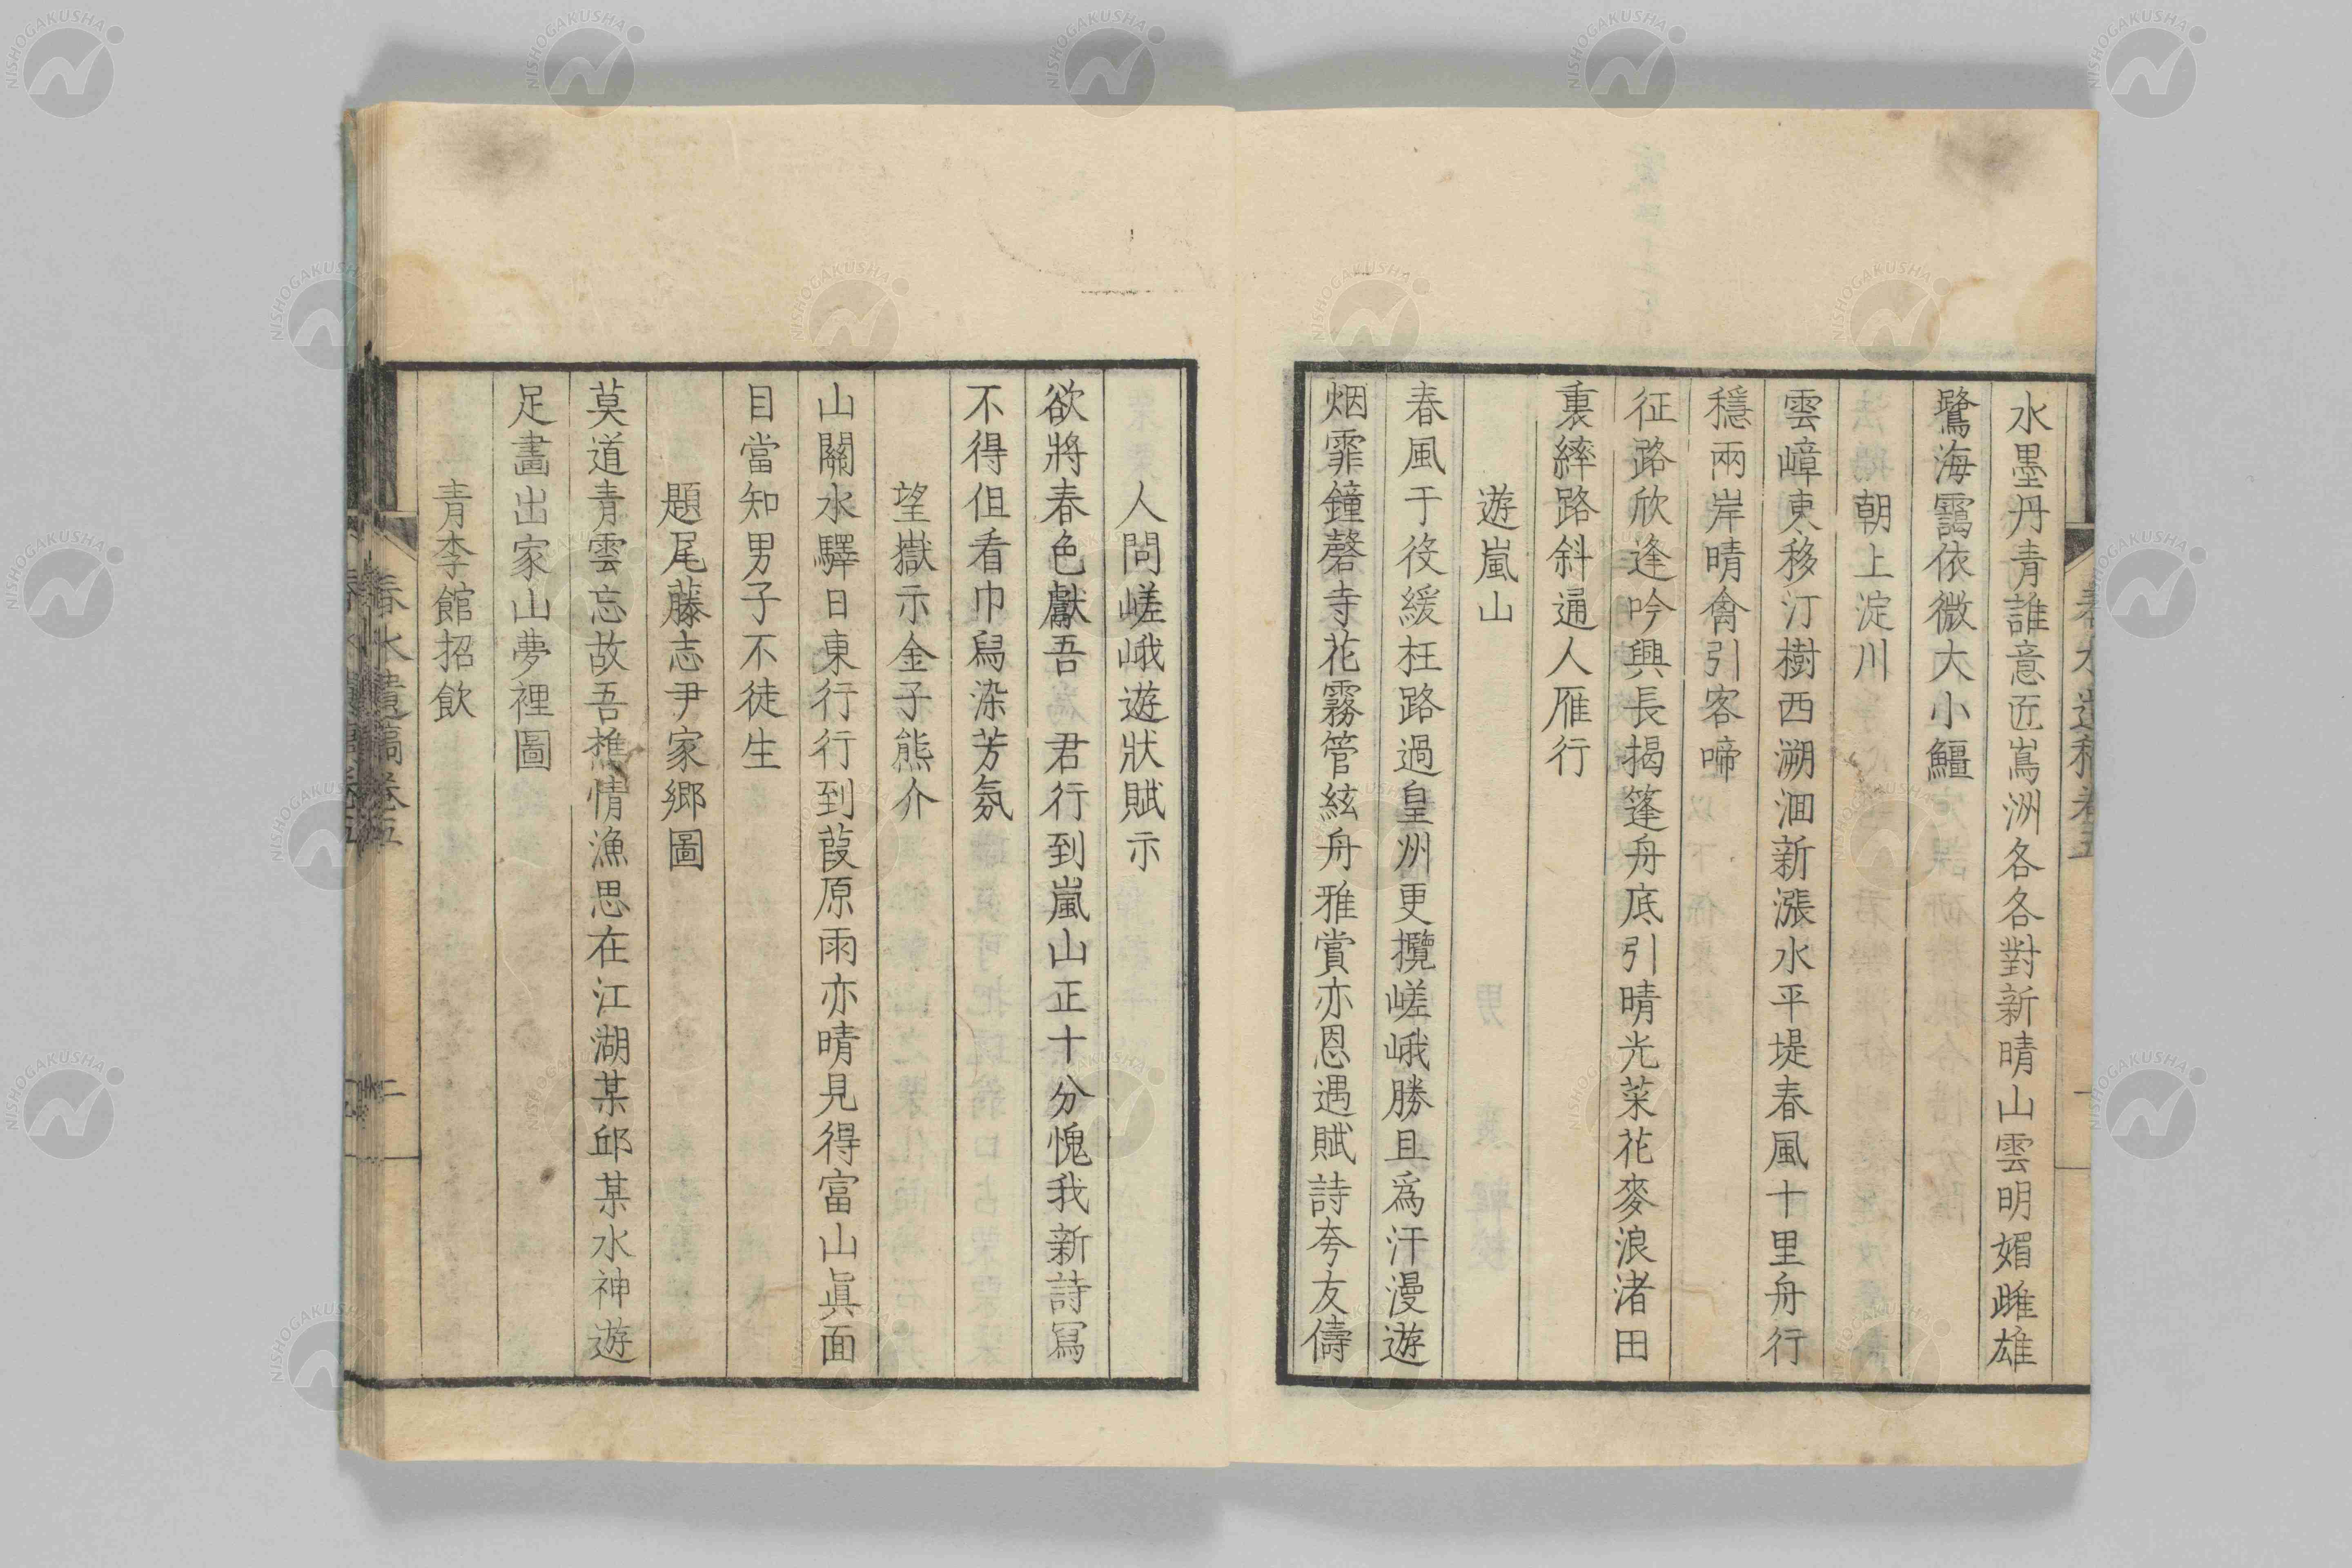 春水遺稿卷五
水墨丹青誰意匠嶌洲各各對新晴山雲明媚雌雄
鷺海靄依微大小鱷
朝上淀川
雲嶂東移汀樹西溯洄新漲水平堤春風十里舟行
穩兩岸晴禽引客啼
征路欣逢吟興長揭篷舟底引晴光菜花麥浪渚田
裏繂路斜通人雁行
遊嵐山
春風于役緩枉路過皇州更攬嵯峨勝且爲汗漫遊
烟霏鐘磬寺花霧管絃舟雅賞亦恩遇賦詩夸友儔
人問嵯峨遊狀賦示
欲將春色獻吾君行到嵐山正十分愧我新詩冩
不得但看巾舄染芳氛
望嶽示金子熊介
山關水驛日東行行到葭原雨亦晴見得富山眞面
目當知男子不徒生
題尾藤志尹家鄉圖
莫道青雲忘故吾樵情漁思在江湖某邱某水神遊
足畫出家山夢裡圖
青李館招飲
春水遺稿卷五
二
NISHOGAKUSHA